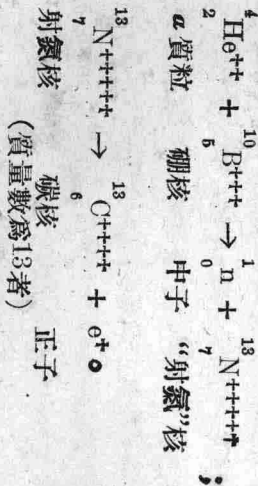 ⁴₂He⁺⁺ + ¹⁰₅B⁺⁺⁺ → ¹₀n + ¹³₇N⁺⁺⁺⁺⁺ ;
α質粒 硼核 中子 “射氮”核
¹³₇N⁺⁺⁺⁺⁺ → ¹³₆C⁺⁺⁺⁺ + e⁺。
射氮核 碳核 正子
(質量數爲13者)